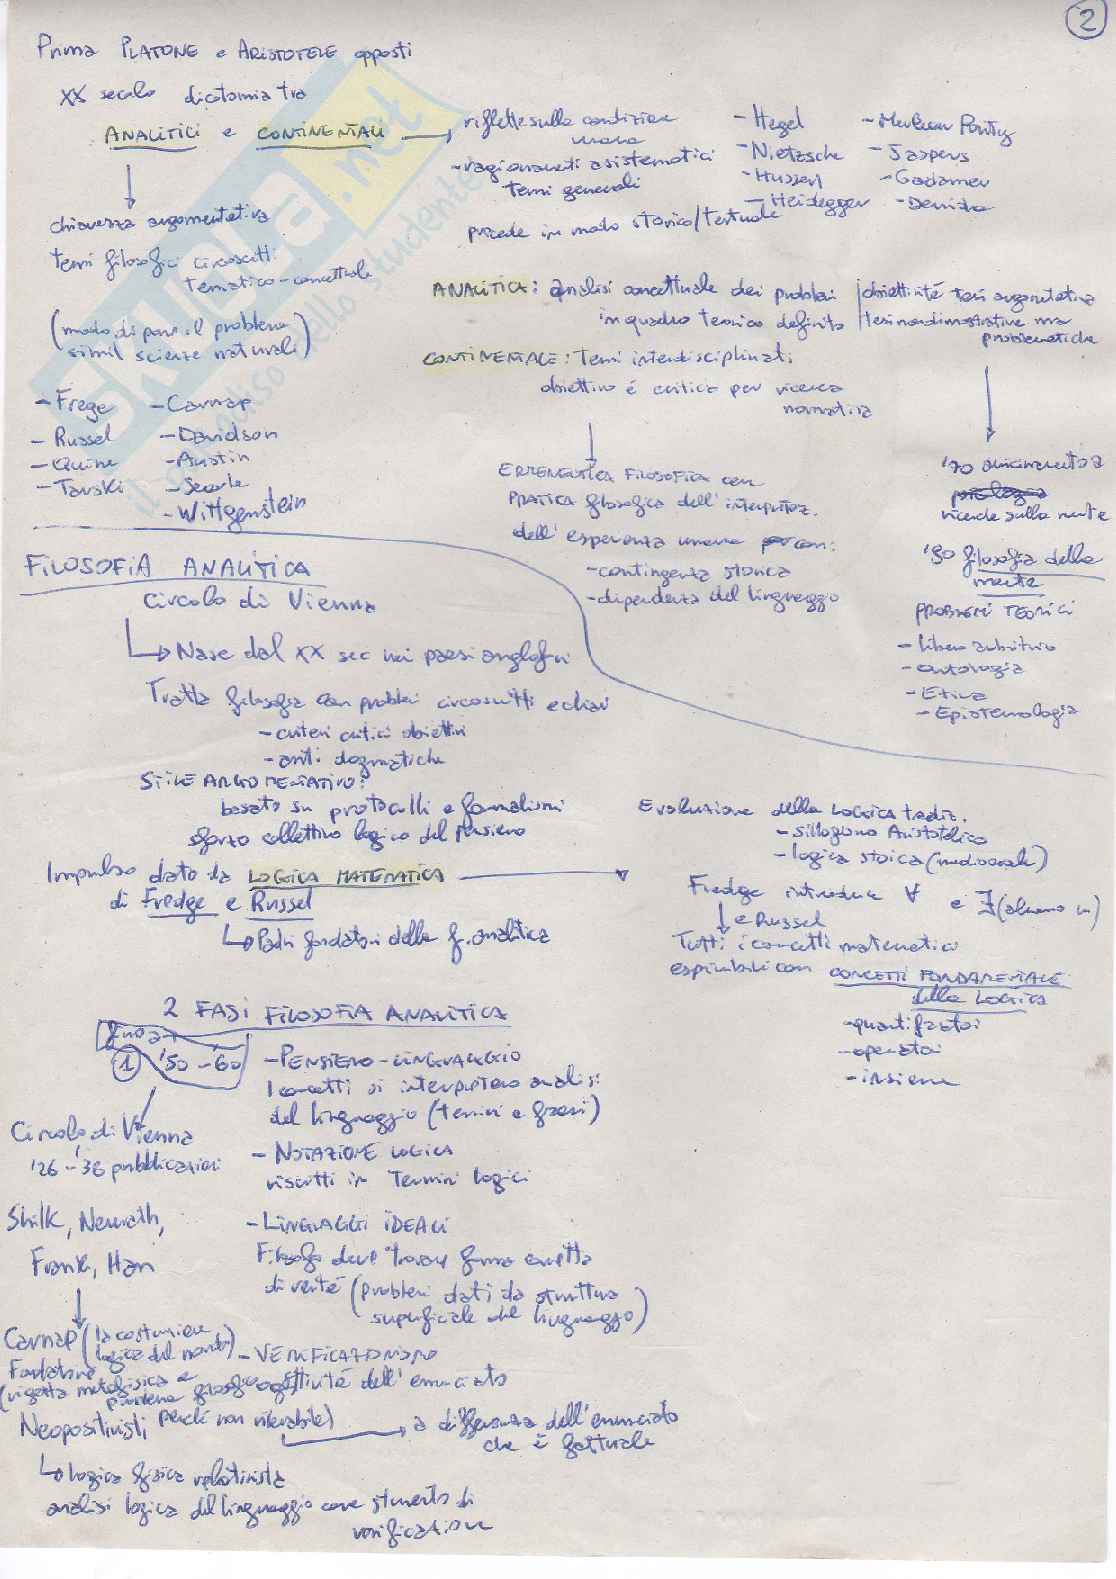 2
Prima PLATONE e ARISTOTELE opposti
XX secolo dicotomia tra
ANALITICI e CONTINENTALI
riflette sulla condizione
umana
- ragionamenti asistematici
temi generali
procede in modo storico/testuale
- Hegel
- Nietzsche
- Husserl
- Heidegger
- Merleau Ponty
- Jaspers
- Gadamer
- Derrida
chiarezza argomentativa
temi filosofici circoscritti
tematico-concettuale
(modo di porre il problema
simil scienze naturali)
- Frege
- Russel
- Quine
- Tarski
- Carnap
- Davidson
- Austin
- Searle
- Wittgenstein
ANALITICA: analisi concettuale dei problemi
in quadro teorico definito
obiettività tesi argomentativa
tesi non dimostrative ma
problematiche
CONTINENTALE: Temi interdisciplinari
obiettivo é critica per ricerca
normativa
ERMENEUTICA FILOSOFIA con
PRATICA filosofica dell'interpretaz.
dell'esperienza umana con:
- contingenza storica
- dipendenza del linguaggio
'70 avvicinamento a
psicologia
ricerche sulla mente
'90 filosofia della
mente
PROBLEMI TEORICI
- libero arbitrio
- ontologia
- Etica
- Epistemologia
FILOSOFIA ANALITICA
circolo di Vienna
Nasce dal XX sec nei paesi anglofoni
Tratta filosofia con problemi circoscritti e chiari
- criteri critici obiettivi
- anti dogmatiche
STILE ARGOMENTATIVO:
basato su protocolli e formalismi
sforzo collettivo logico del pensiero
Impulso dato da LOGICA MATEMATICA
di Fredge e Russel
Padri fondatori della f. analitica
Evoluzione della LOGICA tradiz.
- sillogismo Aristotelico
- logica stoica (medioevale)
Fredge introduce ∀ e ∃ (almeno un)
e Russel
Tutti i concetti matematici
esprimibili con CONCETTI FONDAMENTALI
della LOGICA
- quantificatori
- operatori
- insieme
2 FASI FILOSOFIA ANALITICA
fino a
1 '50 - '60
- PENSIERO-LINGUAGGIO
I concetti si interpretano analisi
del linguaggio (termini e frasi)
- NOTAZIONE LOGICA
riscritti in Termini logici
- LINGUAGGI IDEALI
Filosofo deve trovare forma corretta
di verità (problemi dati da struttura
superficiale del linguaggio)
- VERIFICAZIONISMO
oggettività dell'enunciato
a differenza dell'enunciato
che è fattuale
Circolo di Vienna
'26 - '36 pubblicazioni
Shilk, Neurath,
Frank, Han
Carnap (la costruzione
logica del mondo)
Fondatore
(rigetta metafisica e
problema filosofico
perché non
Neopositivisti
Logica fisica relativista
analisi logica del linguaggio come strumento di
verificazione
skuola.net
il paradiso dello studente